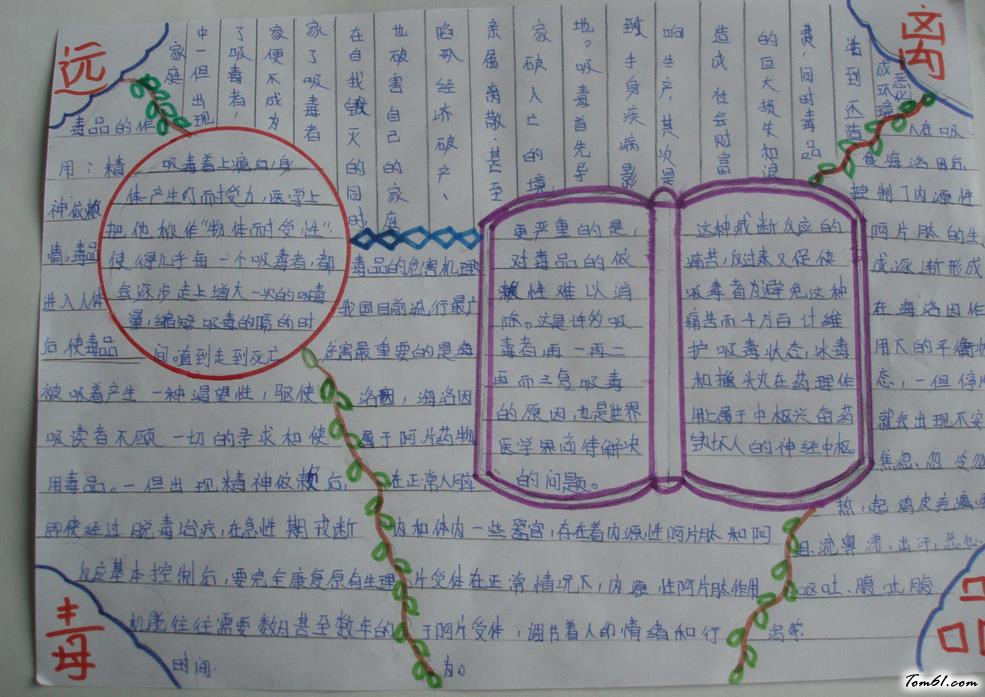 远
离
家庭
中一但出现
了吸毒者,
家便不成为
家了吸毒者
在自我毁灭的同时
也破害自己的家庭
陷于经济破产、
亲属离散.甚至
家破人亡的境
地。吸毒首先导
致于身疾病影
响生产,其次是
造成社会财富
的巨大损失和浪
费,同时毒品
活到还造
成环境恶化
毒品的作
用:精
神依赖
情,毒品
进入人体
后,使毒品
被吸着产生一种渴望性,驱使
吸读者不顾一切的寻求和使
用毒品。一但出现精神依赖后,
即使经过脱毒治疗,在急性期戒断
反应基本控制后,要完全康复原有生理
机能往往需要数月甚至数年的
时间.
吸毒着上瘾后,身
体产生了耐受力,医学上
把他称作“物体耐受性”.
使得几乎每一个吸毒者,都
会逐步走上增大一次的吸毒
量,缩短吸毒的隔的时
间。直到走到死亡
毒品的危害机理
我国目前流行最广
危害最重要的是海
洛因,海洛因
属于阿片药物
在正常人脑
内和体内一些器官,存在着内源性阿片肽和阿
片受体在正常情况下,内源性阿片肽作用
于阿片受体,调节着人的情绪和行
为。
更严重的是,
对毒品的依
赖性难以消
除。这是许多吸
毒者再一再二
再而三复吸毒
的原因,也是世界
医学界尚待解决
的问题。
这种戒断反应的
痛苦,反过来又促使
吸毒者为避免这种
痛苦而千方百计维
护吸毒状态,冰毒
和摇头丸在药理作
用上属于中枢兴奋药
缺坏人的神经中枢
人在吸
食海洛因后,
控制了内源性
阿片肽的生
成逐渐形成
在海洛因作
用下的平衡状
态,一但停
就会出现不安
焦急、忽冷忽
热,起鸡皮疙瘩
流鼻涕、出汗,恶心
呕吐、腹吐、腹
泻等
毒
Tom61.com